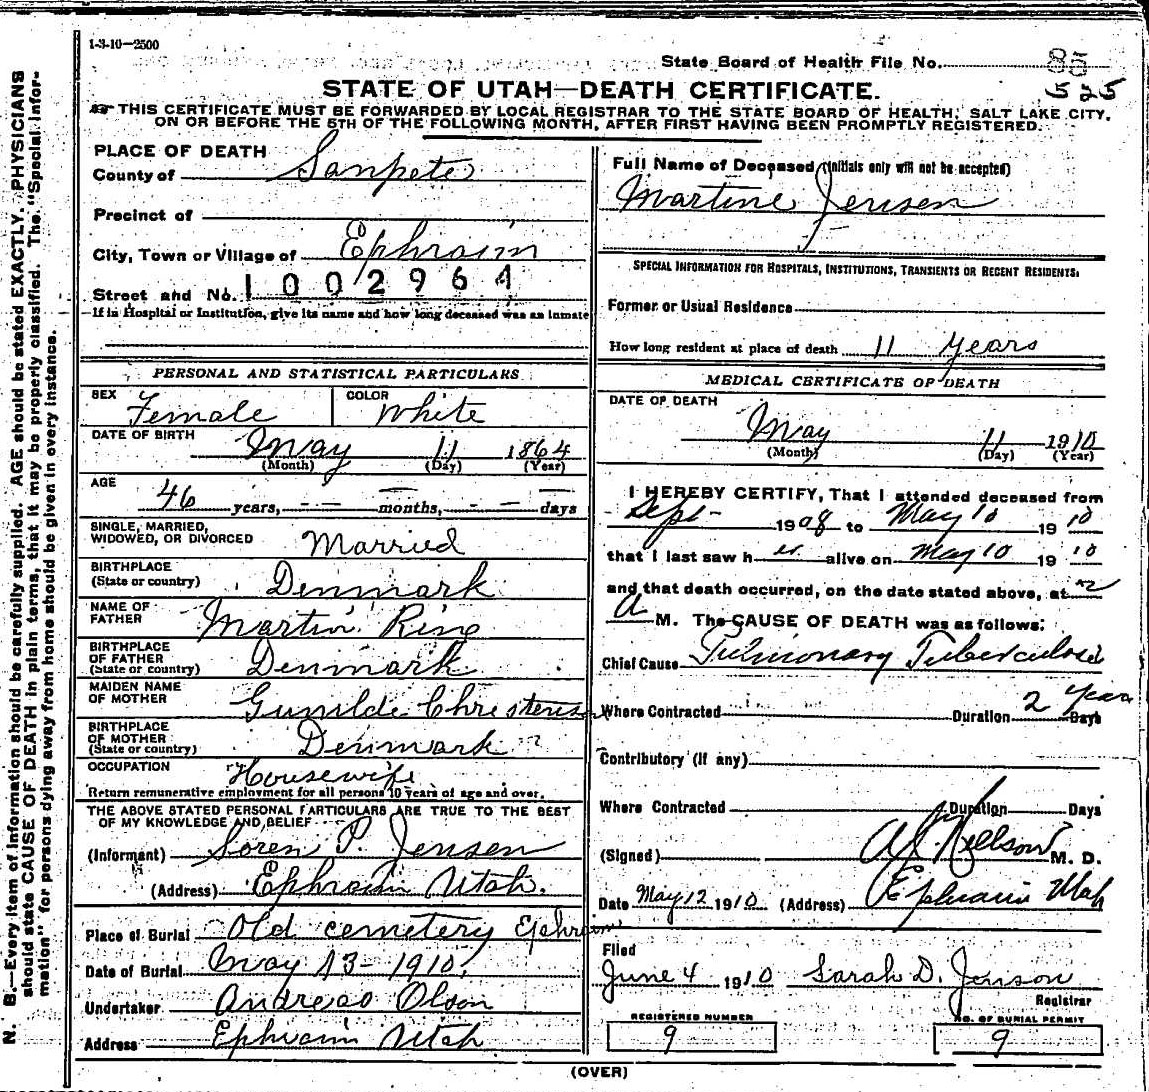 1-3-10—2500
State Board of Health File No. 85
525
STATE OF UTAH—DEATH CERTIFICATE.
THIS CERTIFICATE MUST BE FORWARDED BY LOCAL REGISTRAR TO THE STATE BOARD OF HEALTH, SALT LAKE CITY,
ON OR BEFORE THE 5TH OF THE FOLLOWING MONTH, AFTER FIRST HAVING BEEN PROMPTLY REGISTERED.
N. B.—Every item of information should be carefully supplied. AGE should be stated EXACTLY. PHYSICIANS
should state CAUSE OF DEATH in plain terms, that it may be properly classified. The "Special Infor-
mation" for persons dying away from home should be given in every instance.
PLACE OF DEATH
County of Sanpete
Precinct of
City, Town or Village of Ephraim
Street and No. 1002964
If in Hospital or Institution, give its name and how long deceased was an inmate
PERSONAL AND STATISTICAL PARTICULARS
SEX Female COLOR White
DATE OF BIRTH May 11 1864
(Month) (Day) (Year)
AGE 46 years, — months, — days
SINGLE, MARRIED,
WIDOWED, OR DIVORCED Married
BIRTHPLACE
(State or country) Denmark
NAME OF
FATHER Martin Ring
BIRTHPLACE
OF FATHER
(State or country) Denmark
MAIDEN NAME
OF MOTHER Gunilde Christenson
BIRTHPLACE
OF MOTHER
(State or country) Denmark
OCCUPATION Housewife
Return remunerative employment for all persons 10 years of age and over.
THE ABOVE STATED PERSONAL PARTICULARS ARE TRUE TO THE BEST
OF MY KNOWLEDGE AND BELIEF
(Informant) Soren P. Jensen
(Address) Ephraim Utah.
Place of Burial Old cemetery Ephraim
Date of Burial May 13-1910
Undertaker Andreas Olson
Address Ephraim Utah
Full Name of Deceased (initials only will not be accepted)
Martine Jensen
SPECIAL INFORMATION FOR HOSPITALS, INSTITUTIONS, TRANSIENTS OR RECENT RESIDENTS:
Former or Usual Residence
How long resident at place of death 11 years
MEDICAL CERTIFICATE OF DEATH
DATE OF DEATH
May 11 1910
(Month) (Day) (Year)
I HEREBY CERTIFY, That I attended deceased from
Sept- 1908 to May 10 1910
that I last saw her alive on May 10 1910
and that death occurred, on the date stated above, at 2
A M. The CAUSE OF DEATH was as follows:
Chief Cause Pulmonary Tuberculosis
Where Contracted Duration 2 Years Days
Contributory (If any)
Where Contracted Duration Days
(Signed) Nellson M. D.
Date May 12 1910 (Address) Ephraim Utah
Filed
June 4 1910 Sarah D. Jenson
Registrar
REGISTERED NUMBER NO. OF BURIAL PERMIT
9 9
(OVER)